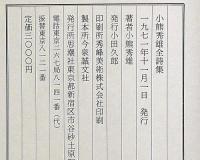 小熊秀雄全詩集
一九七一年十一月一日 発行
著者小熊秀雄
発行小田久郎
印刷所秀峰美術株式会社印刷
製本所今泉誠文社
発行所思潮社東京都新宿区市谷砂土原
電話東京二六七局八一四一番(代)
振替東京八一二一番
定価三〇〇〇円